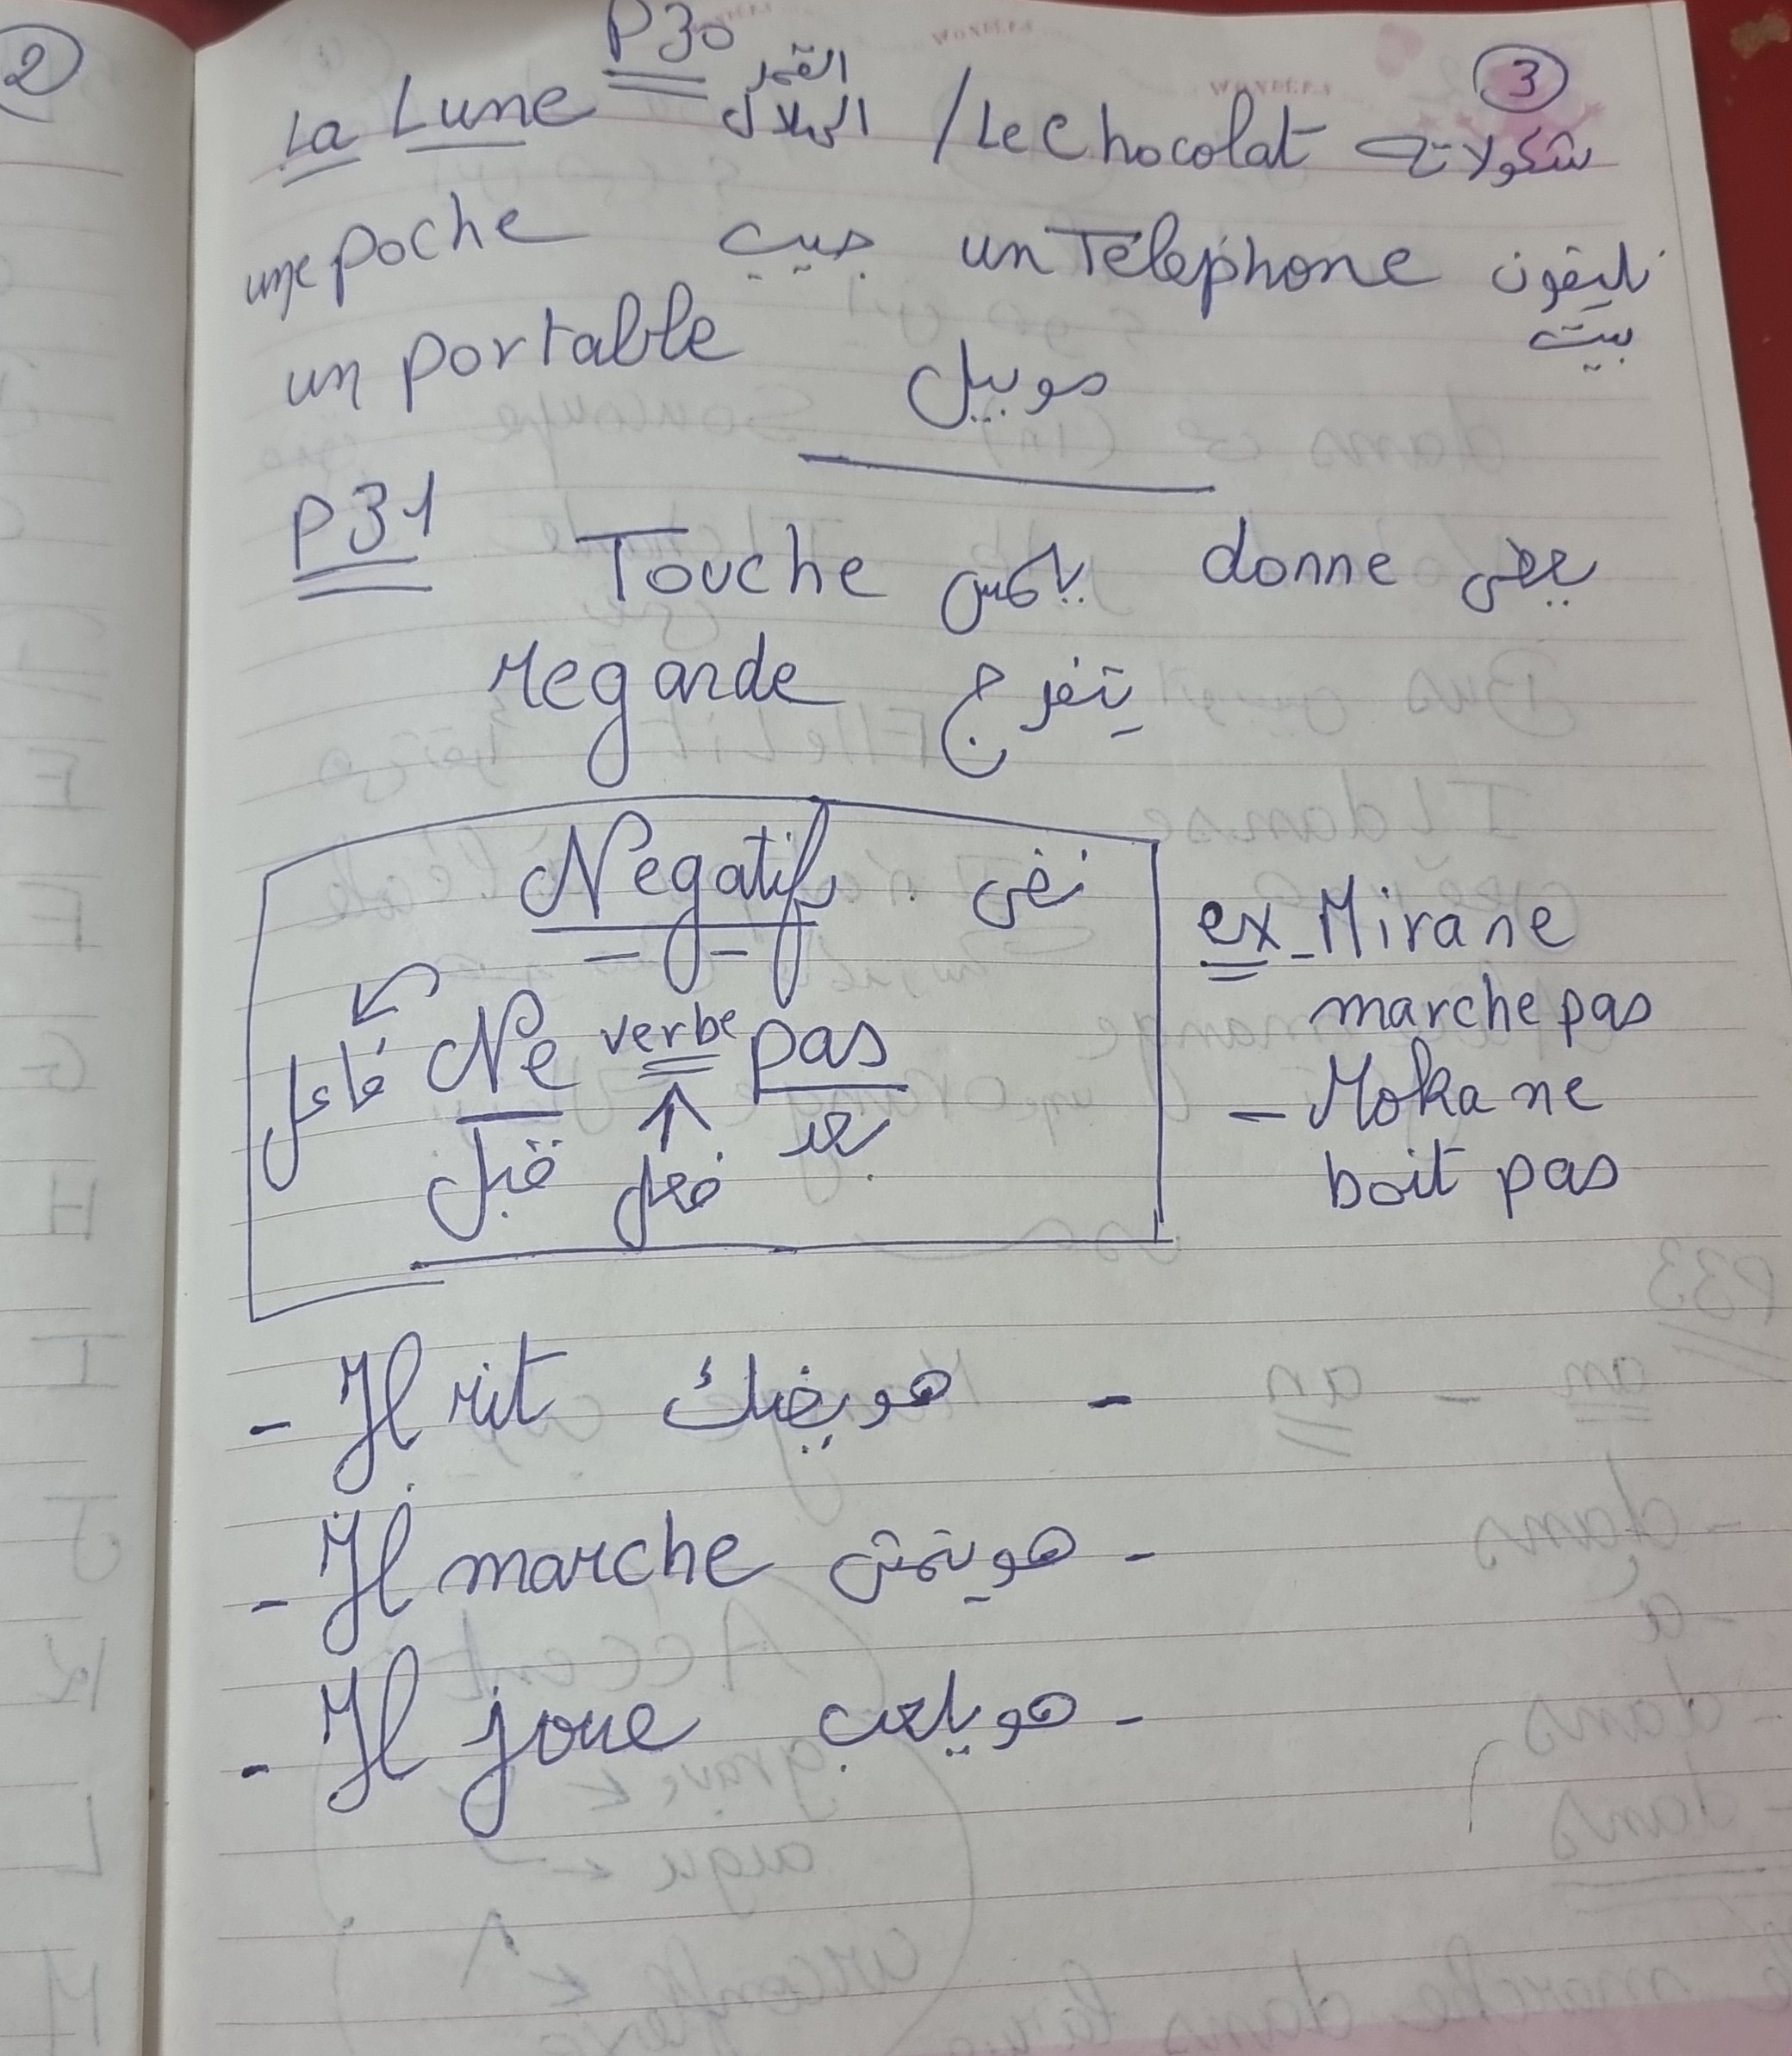 P30
3
2
La Lune القمر الهلال / Le Chocolat شكولاتة
une poche جيب un Téléphone تليفون بيت
un portable موبيل
P31 Touche يلمس donne يعطى
regarde يتفرج
Negatif نفى
فاعل Ne verbe pas
قبل فعل بعد
ex - Mira ne
marche pas
- Moka ne
boit pas
- Il rit هو يضحك -
- Il marche هو يتمشى -
- Il joue هو يلعب -